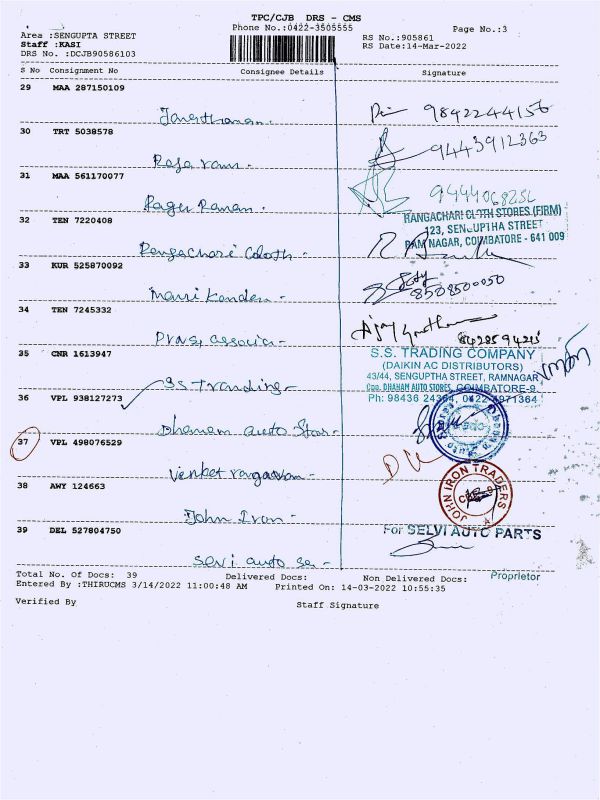 TPC/CJB DRS - CMS
Phone No.:0422-3505555
Page No.:3
Area :SENGUPTA STREET
Staff :KASI
DRS No. :DCJB90586103
RS No.:905861
RS Date:14-Mar-2022
S No Consignment No Consignee Details Signature
29 MAA 287150109
Janarthanan 9842244156
30 TRT 5038578
Raja ram 9443912363
31 MAA 561170077
Ragu Raman
RANGACHARI CLOTH STORES (FIRM)
123, SENGUPTHA STREET
RAM NAGAR, COIMBATORE - 641 009
32 TEN 7220408
Rangachari Cloth
33 KUR 525870092
Mani Kandan 8508500050
34 TEN 7245332
35 CNR 1613947
S.S. TRADING COMPANY
(DAIKIN AC DISTRIBUTORS)
43/44, SENGUPTHA STREET, RAMNAGAR
Opp. DHANAM AUTO STORES, COIMBATORE-9.
SS Tranding
36 VPL 938127273
Dhanam auto Stor
37 VPL 498076529
Venket
38 AWY 124663
John Iron
JOHN IRON TRADERS
39 DEL 527804750
For SELVI AUTO PARTS
Selvi auto
Proprietor
Total No. Of Docs: 39 Delivered Docs: Non Delivered Docs:
Entered By :THIRUCMS 3/14/2022 11:00:48 AM Printed On: 14-03-2022 10:55:35
Verified By Staff Signature